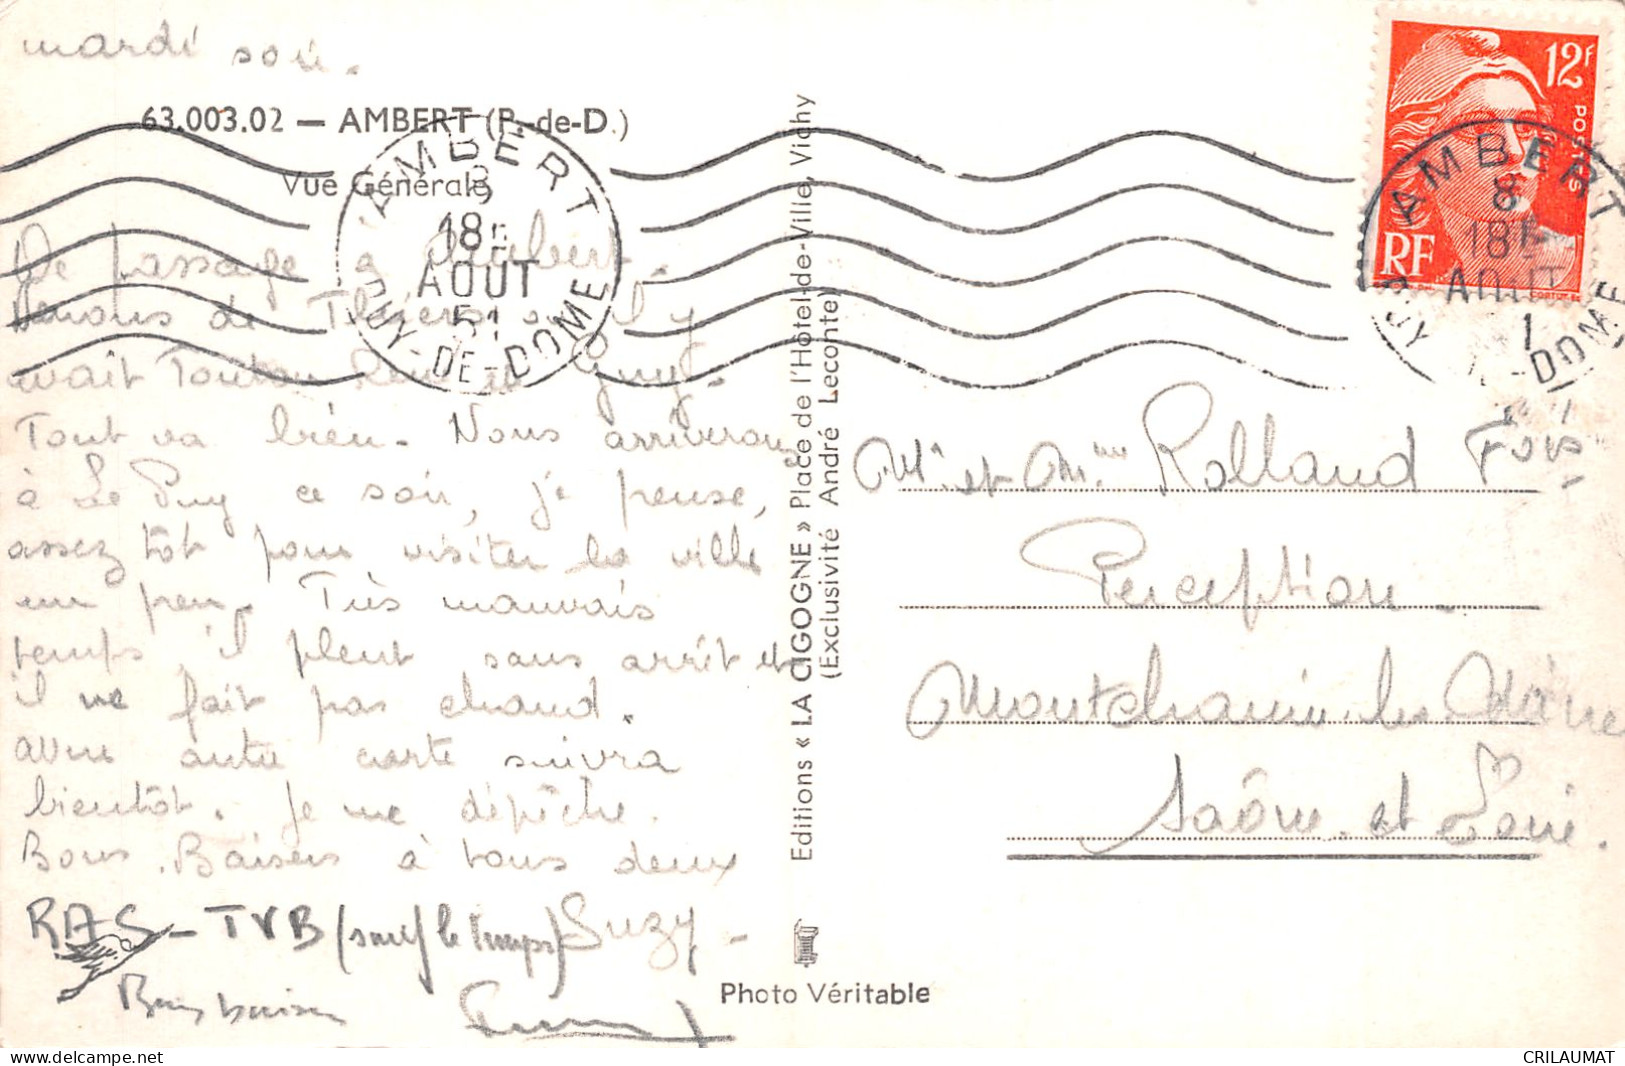 mardi soir.
63.003.02 — AMBERT (P.-de-D.)
Vue Générale
De passage à Ambert.
Venons de Thiers où il y
avait Toutou Guy.
Tout va bien. Nous arriverons
à Le Puy ce soir, je pense,
assez tôt pour visiter la ville
un peu. Très mauvais
temps, il pleut sans arrêt et
il ne fait pas chaud.
Une autre carte suivra
bientôt. Je me dépêche.
Bons Baisers à tous deux
Suzy -
RAS - TVB (sauf le temps)
Bons baisers
AMBERT
PUY-DE-DOME
8
18H
AOUT
51
12F
POSTES
RF
AMBERT
PUY-DE-DOME
8
18H
AOUT
Editions « LA CIGOGNE » Place de l'Hôtel-de-Ville, Vichy
(Exclusivité André Leconte)
Mr et Mme Rolland
Perception -
Montchanin-les-Mines
Saône et Loire.
Photo Véritable
CRILAUMAT